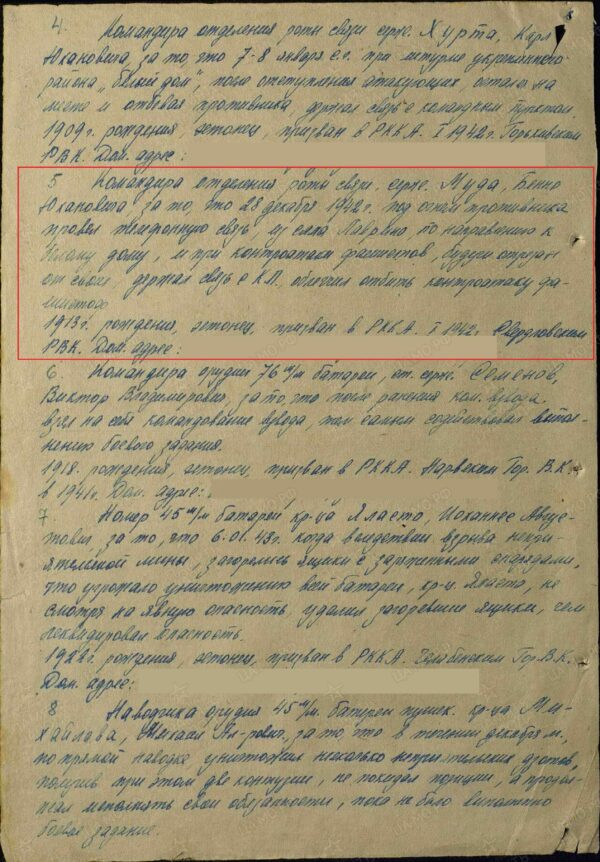 4. Командира отделения роты связи серж. Хурта, Карл
Юхановича, за то, что 7-8 января с.г. при штурме укрепленного
района „белый дом", после отступления атакующих, остался на
месте и отбивая противника, держал связь с командным пунктом.
1909 г. рождения, эстонец, призван в РККА. I 1942 г. Горьковским
РВК. Дом. адрес:
5 Командира отделения роты связи. серж. Муда, Бенно
Юхановича за то, что 28 декабря 1942 г. под огнем противника
провел телефонную связь, из села Лавровно, по направлению к
белому дому, и при контроатаки фашистов, будучи отрезан
от своих, держал связь с К.П. облегчил отбить контроатаку фа-
шистов
1913 г. рождения, эстонец, призван в РККА. I 1942 г. Свердловским
РВК. Дом. адрес:
6. Командира орудии 76 м/м батареи, ст. серж. Семенов,
Виктор Владимировича, за то, что после ранения ком. взвода.
взял на себя командование взвода, тем самым содействовал выпол-
нению боевого задания.
1918. рождения, эстонец, призван в РККА. Нарвским Гор. В.К.
в 1941 г. Дом. адрес:
7 Номер 45 м/м батареи кр-ца Яласто, Иоханнес Авгус-
товича, за то, что 6.01.43 г. когда вследствии взрыва непри-
ятельской мины, загорелись ящики с заряженными снарядами,
что угрожало уничтожению всей батареи, кр-ц. Яласто, не
смотря на явную опасность удалил загоревшие ящики, чем
ликвидировал опасность.
рождения, эстонец, призван в РККА. Челябенским Гор.В.К.
Дом. адрес:
8 Наводчика орудия 45 м/м. батареи пушек. кр-ца Ми-
хайлова, за то что в течении декабря м.,
по прямой наводке уничтожил несколько неприятельских дзотов,
получив при этом две контузии, не покидал позиции, а продол-
жал исполнять свои обязанности, пока не было выполнено
боевое задание.